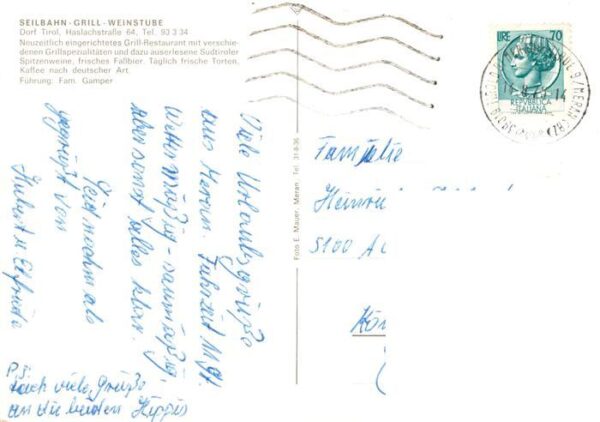 SEILBAHN - GRILL - WEINSTUBE
Dorf Tirol, Haslachstraße 64, Tel. 93 3 34
Neuzeitlich eingerichtetes Grill-Restaurant mit verschie-
denen Grillspezialitäten und dazu auserlesene Südtiroler
Spitzenweine, frisches Faßbier. Täglich frische Torten,
Kaffee nach deutscher Art.
Führung: Fam. Gamper
Viele Urlaubsgrüße
aus Meran. Fahrzeit 11 Std.
Wettermäßig
aber sonst alles klar.
Seid nochmals
gegrüßt von
Hubert u. Elfriede
P.S.
auch viele Grüße
an die beiden Hippis
Foto E. Mauer, Meran - Tel. 31-8-35
LIRE 70
REPUBBLICA
ITALIANA
Familie
Heinri
5100 A
Kön